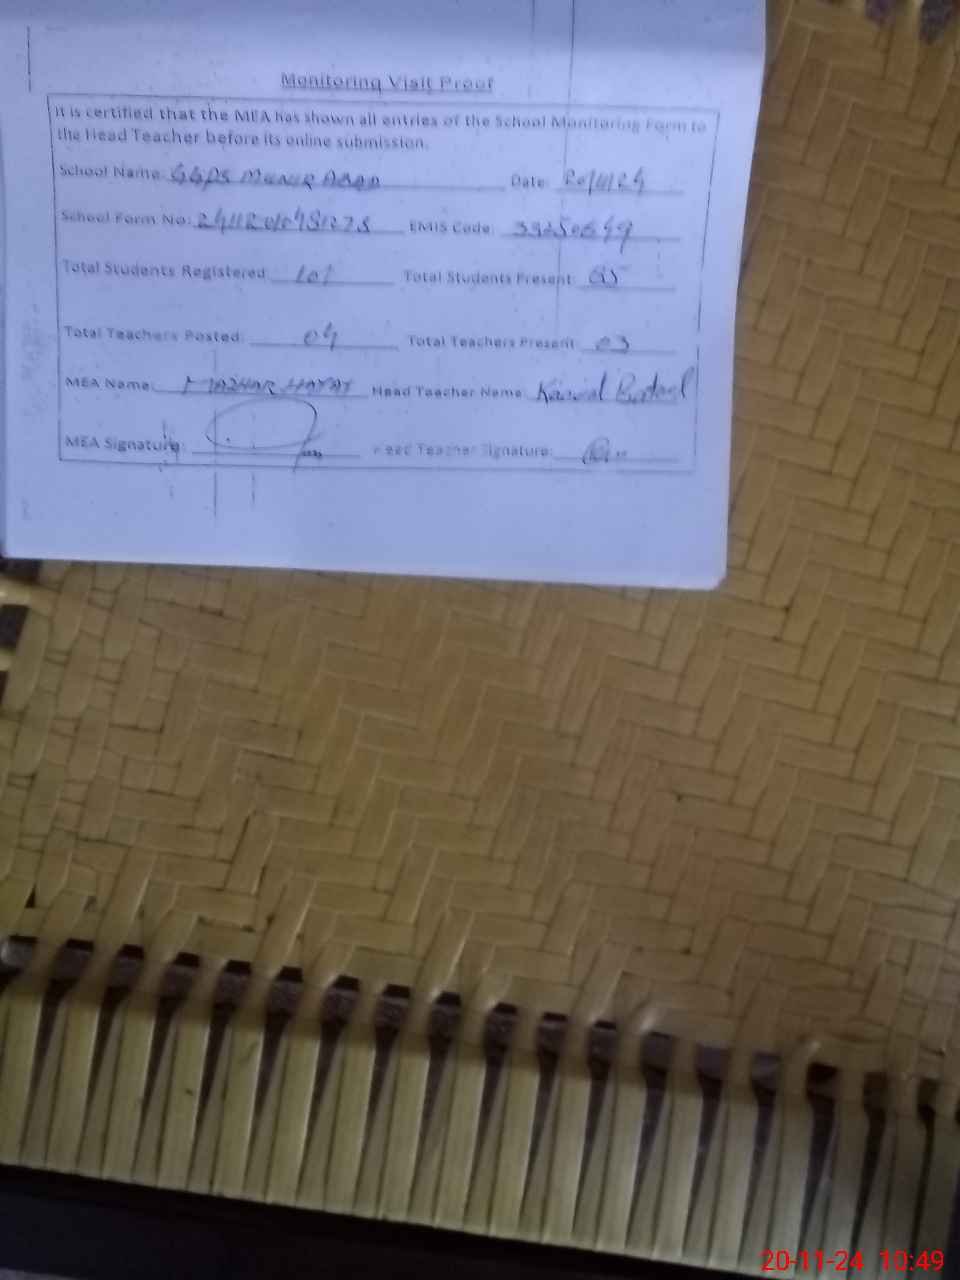 Monitoring Visit Proof
It is certified that the MEA has shown all entries of the School Monitoring Form to
the Head Teacher before its online submission.
School Name: GGPS MUNIR ABAD Date: 20/11/24
School Form No: EMIS Code:
Total Students Registered: 101 Total Students Present:
Total Teachers Posted: 04 Total Teachers Present: 03
MEA Name: MAZHAR HAYAT Head Teacher Name: Kanwal
MEA Signature: Head Teacher Signature:
20-11-24 10:49